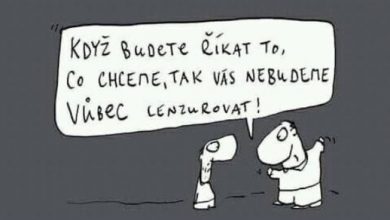 KDYŽ BUDETE ŘÍKAT TO,
CO CHCEME, TAK VÁS NEBUDEME
VŮBEC CENZUROVAT!